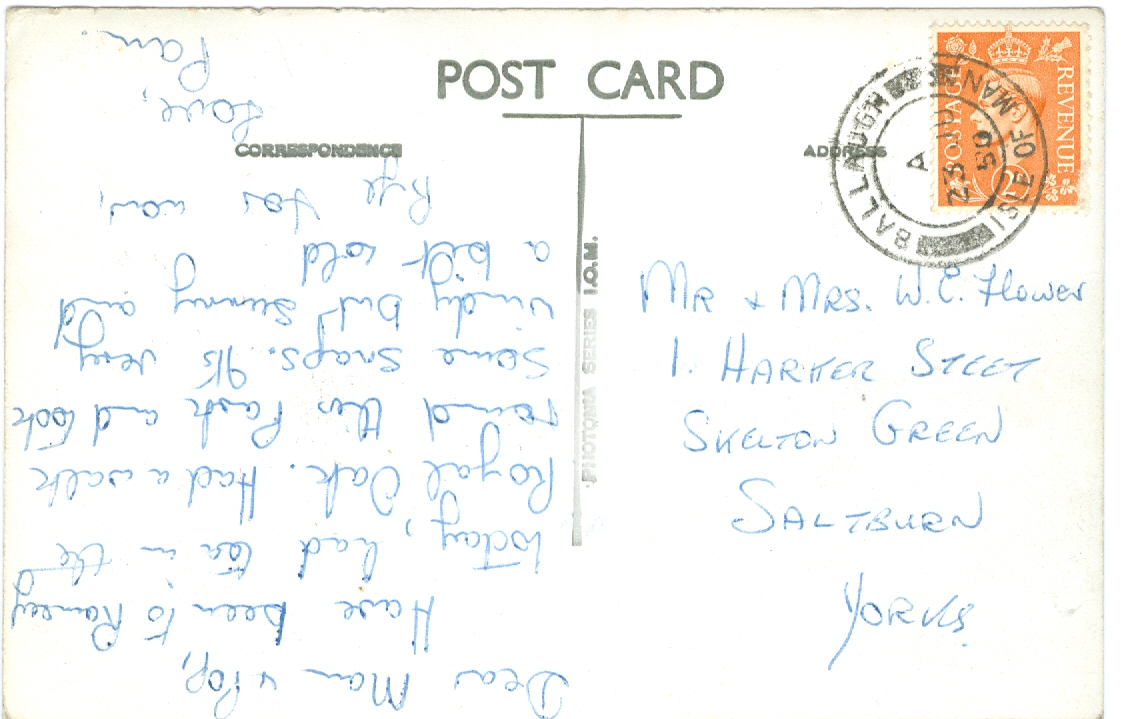 POST CARD
CORRESPONDENCE
ADDRESS
POSTAGE
REVENUE
BALLAUGH
ISLE OF MAN
A
23 JU
50
PHOTOMIA SERIES I.O.M.
Mr + Mrs. W.E. Flower
1. Harker Steet
Skelton Green
Saltburn
Yorks.
Dear Mam & Pop,
Have been to Ramsey
today, had tea in the
Royal Oak. Had a walk
round this Park and took
some snaps. It's very
windy but sunny and
a bit cold
Bye for now,
Love,
Pam.